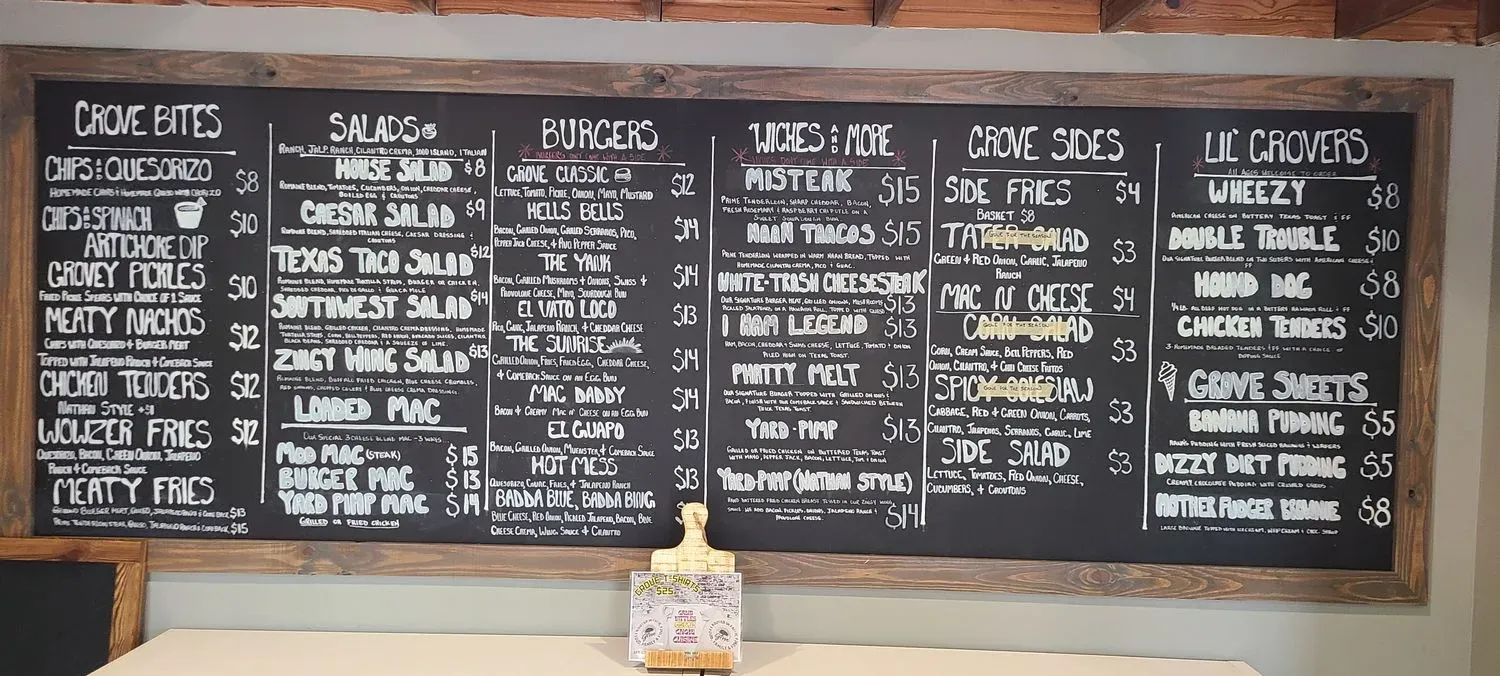 GROVE BITES
CHIPS AND QUESORIZO $8
HOMEMADE CHIPS & HOMEMADE QUESO WITH CHORIZO
CHIPS AND SPINACH $10
ARTICHOKE DIP
GROVEY PICKLES $10
FRIED PICKLE SPEARS WITH CHOICE OF 1 SAUCE
MEATY NACHOS $12
CHIPS WITH QUESORIZO & BURGER MEAT
TOPPED WITH JALAPENO RANCH & COMEBACK SAUCE
CHICKEN TENDERS $12
NATHAN STYLE +$1
WOWZER FRIES $12
QUESORIZO, BACON, GREEN ONION, JALAPENO
RANCH & COMEBACK SAUCE
MEATY FRIES
GROUND BURGER MEAT, QUESO, JALAPENO RANCH & COMEBACK $13
PRIME TENDERLOIN STEAK, QUESO, JALAPENO RANCH & COMEBACK $15
SALADS
RANCH, JALP. RANCH, CILANTRO CREMA, 1000 ISLAND, ITALIAN
HOUSE SALAD $8
ROMAINE BLEND, TOMATOES, CUCUMBERS, ONION, CHEDDAR CHEESE,
BOILED EGG & CROUTONS
CAESAR SALAD $9
ROMAINE BLEND, SHREDDED ITALIAN CHEESE, CAESAR DRESSING &
CROUTONS
TEXAS TACO SALAD $12
ROMAINE BLEND, HOMEMADE TORTILLA STRIPS, BURGER OR CHICKEN,
SHREDDED CHEDDAR, PICO DE GALLO & GUACAMOLE
SOUTHWEST SALAD $14
ROMAINE BLEND, GRILLED CHICKEN, CILANTRO CREMA DRESSING, HOMEMADE
TORTILLA STRIPS, CORN, BELL PEPPERS, RED ONION, AVOCADO SLICES, CILANTRO,
BLACK BEANS, SHREDDED CHEDDAR & A SQUEEZE OF LIME
ZINGY WING SALAD $13
ROMAINE BLEND, BUFFALO FRIED CHICKEN, BLUE CHEESE CRUMBLES,
RED ONIONS, CHOPPED CELERY & BLUE CHEESE CREMA DRESSING
LOADED MAC
OUR SPECIAL 3 CHEESE BLEND MAC - 3 WAYS
MOO MAC (STEAK) $15
BURGER MAC $13
YARD PIMP MAC $14
GRILLED OR FRIED CHICKEN
BURGERS
BURGERS DON'T COME WITH A SIDE
GROVE CLASSIC $12
LETTUCE, TOMATO, PICKLE, ONION, MAYO, MUSTARD
HELLS BELLS $14
BACON, GRILLED ONION, GRILLED SERRANOS, PICO,
PEPPER JACK CHEESE, & AVO PEPPER SAUCE
THE YANK $14
BACON, GRILLED MUSHROOMS & ONIONS, SWISS &
PROVOLONE CHEESE, MAYO, SOURDOUGH BUN
EL VATO LOCO $13
PICO, GUAC, JALAPENO RANCH, & CHEDDAR CHEESE
THE SUNRISE $14
GRILLED ONION, FRIES, FRIED EGG, CHEDDAR CHEESE,
& COMEBACK SAUCE ON AN EGG BUN
MAC DADDY $14
BACON & CREAMY MAC N' CHEESE ON AN EGG BUN
EL GUAPO $13
BACON, GRILLED ONION, MUENSTER & COMEBACK SAUCE
HOT MESS $13
QUESORIZO, GUAC, FRIES, & JALAPENO RANCH
BADDA BLUE, BADDA BING
BLUE CHEESE, RED ONION, PICKLED JALAPENO, BACON, BLUE
CHEESE CREMA, WING SAUCE & CILANTRO
'WICHES AND MORE
'WICHES DON'T COME WITH A SIDE
MISTEAK $15
PRIME TENDERLOIN, SHARP CHEDDAR, BACON,
FRESH ROSEMARY & RASPBERRY CHIPOTLE ON A
SWEET SOURDOUGH BUN
NAAN TAACOS $15
PRIME TENDERLOIN WRAPPED IN WARM NAAN BREAD, TOPPED WITH
HOMEMADE CILANTRO CREMA, PICO & GUAC
WHITE-TRASH CHEESESTEAK $13
OUR SIGNATURE BURGER MEAT, GRILLED ONIONS, MUSHROOMS,
PICKLED JALAPENO, ON A HAWAIIAN ROLL, TOPPED WITH QUESO
I HAM LEGEND $13
HAM, BACON, CHEDDAR & SWISS CHEESE, LETTUCE, TOMATO & ONION
PILED HIGH ON TEXAS TOAST
PHATTY MELT $13
OUR SIGNATURE BURGER TOPPED WITH GRILLED ONIONS &
BACON, FINISH WITH OUR COMEBACK SAUCE & SANDWICHED BETWEEN
THICK TEXAS TOAST
YARD-PIMP $13
GRILLED OR FRIED CHICKEN ON BUTTERED TEXAS TOAST
WITH MAYO, PEPPER JACK, BACON, LETTUCE, TOM & ONION
YARD-PIMP (NATHAN STYLE)
HAND BATTERED FRIED CHICKEN BREAST TOSSED IN OUR ZINGY WING
SAUCE. WE ADD BACON, PICKLES, ONIONS, JALAPENO RANCH &
PROVOLONE CHEESE. $14
GROVE SIDES
SIDE FRIES $4
BASKET $8
TATER SALAD $3
GONE FOR THE SEASON
GREEN & RED ONION, GARLIC, JALAPENO
RANCH
MAC N' CHEESE $4
CORN SALAD $3
GONE FOR THE SEASON
CORN, CREAM SAUCE, BELL PEPPERS, RED
ONION, CILANTRO, & CHILI CHEESE FRITOS
SPICY COLESLAW $3
GONE FOR THE SEASON
CABBAGE, RED & GREEN ONION, CARROTS,
CILANTRO, JALAPENOS, SERRANOS, GARLIC, LIME
SIDE SALAD $3
LETTUCE, TOMATOES, RED ONION, CHEESE,
CUCUMBERS, & CROUTONS
LIL' GROVERS
ALL AGES WELCOME TO ORDER
WHEEZY $8
AMERICAN CHEESE ON BUTTERY TEXAS TOAST & FF
DOUBLE TROUBLE $10
OUR SIGNATURE BURGER BLEND ON TWO SLIDERS WITH AMERICAN CHEESE &
FF
HOUND DOG $8
1/4 LB. ALL BEEF HOT DOG IN A BUTTERY HAWAIIAN ROLL & FF
CHICKEN TENDERS $10
3 HOMEMADE BREADED TENDERS & FF WITH A CHOICE OF
DIPPING SAUCE
GROVE SWEETS
BANANA PUDDING $5
NANA'S PUDDING WITH FRESH SLICED BANANAS & WAFERS
DIZZY DIRT PUDDING $5
CREAMY CHOCOLATE PUDDING WITH CRUSHED OREOS
MOTHER FUDGER BROWNIE $8
LARGE BROWNIE TOPPED WITH ICE CREAM, WHIP CREAM & CHOC. SYRUP
GROVE T-SHIRTS
$25